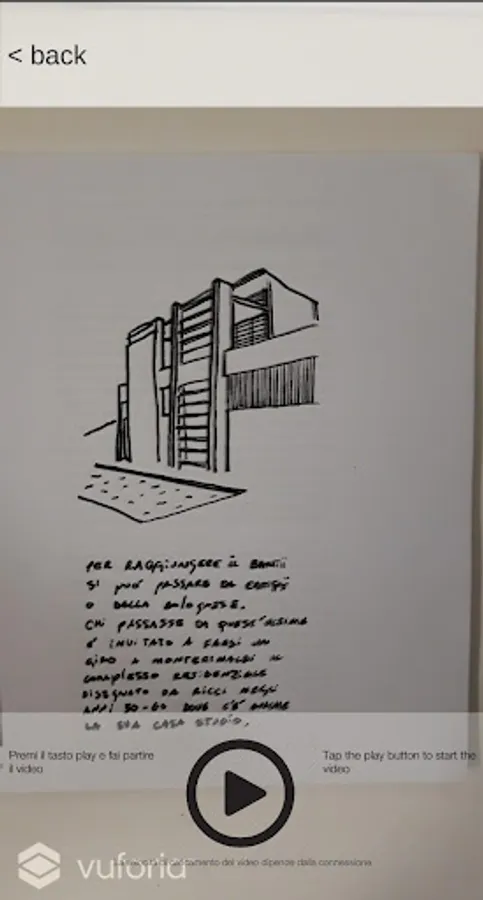 < back
PER RAGGIUNGERE IL BANTII
SI PUÒ PASSARE DA CAREGGI
O DALLA BOLOGNESE.
CHI PASSASSE DA QUEST'ULTIMA
È INVITATO A FARSI UN
GIRO A MONTERINALDI IL
COMPLESSO RESIDENZIALE
DISEGNATO DA RICCI NEGLI
ANNI 50-60 DOVE C'È ANCHE
LA SUA CASA STUDIO.
Premi il tasto play e fai partire
il video
Tap the play button to start the
video
del video dipenze dalla connessione
vuforia